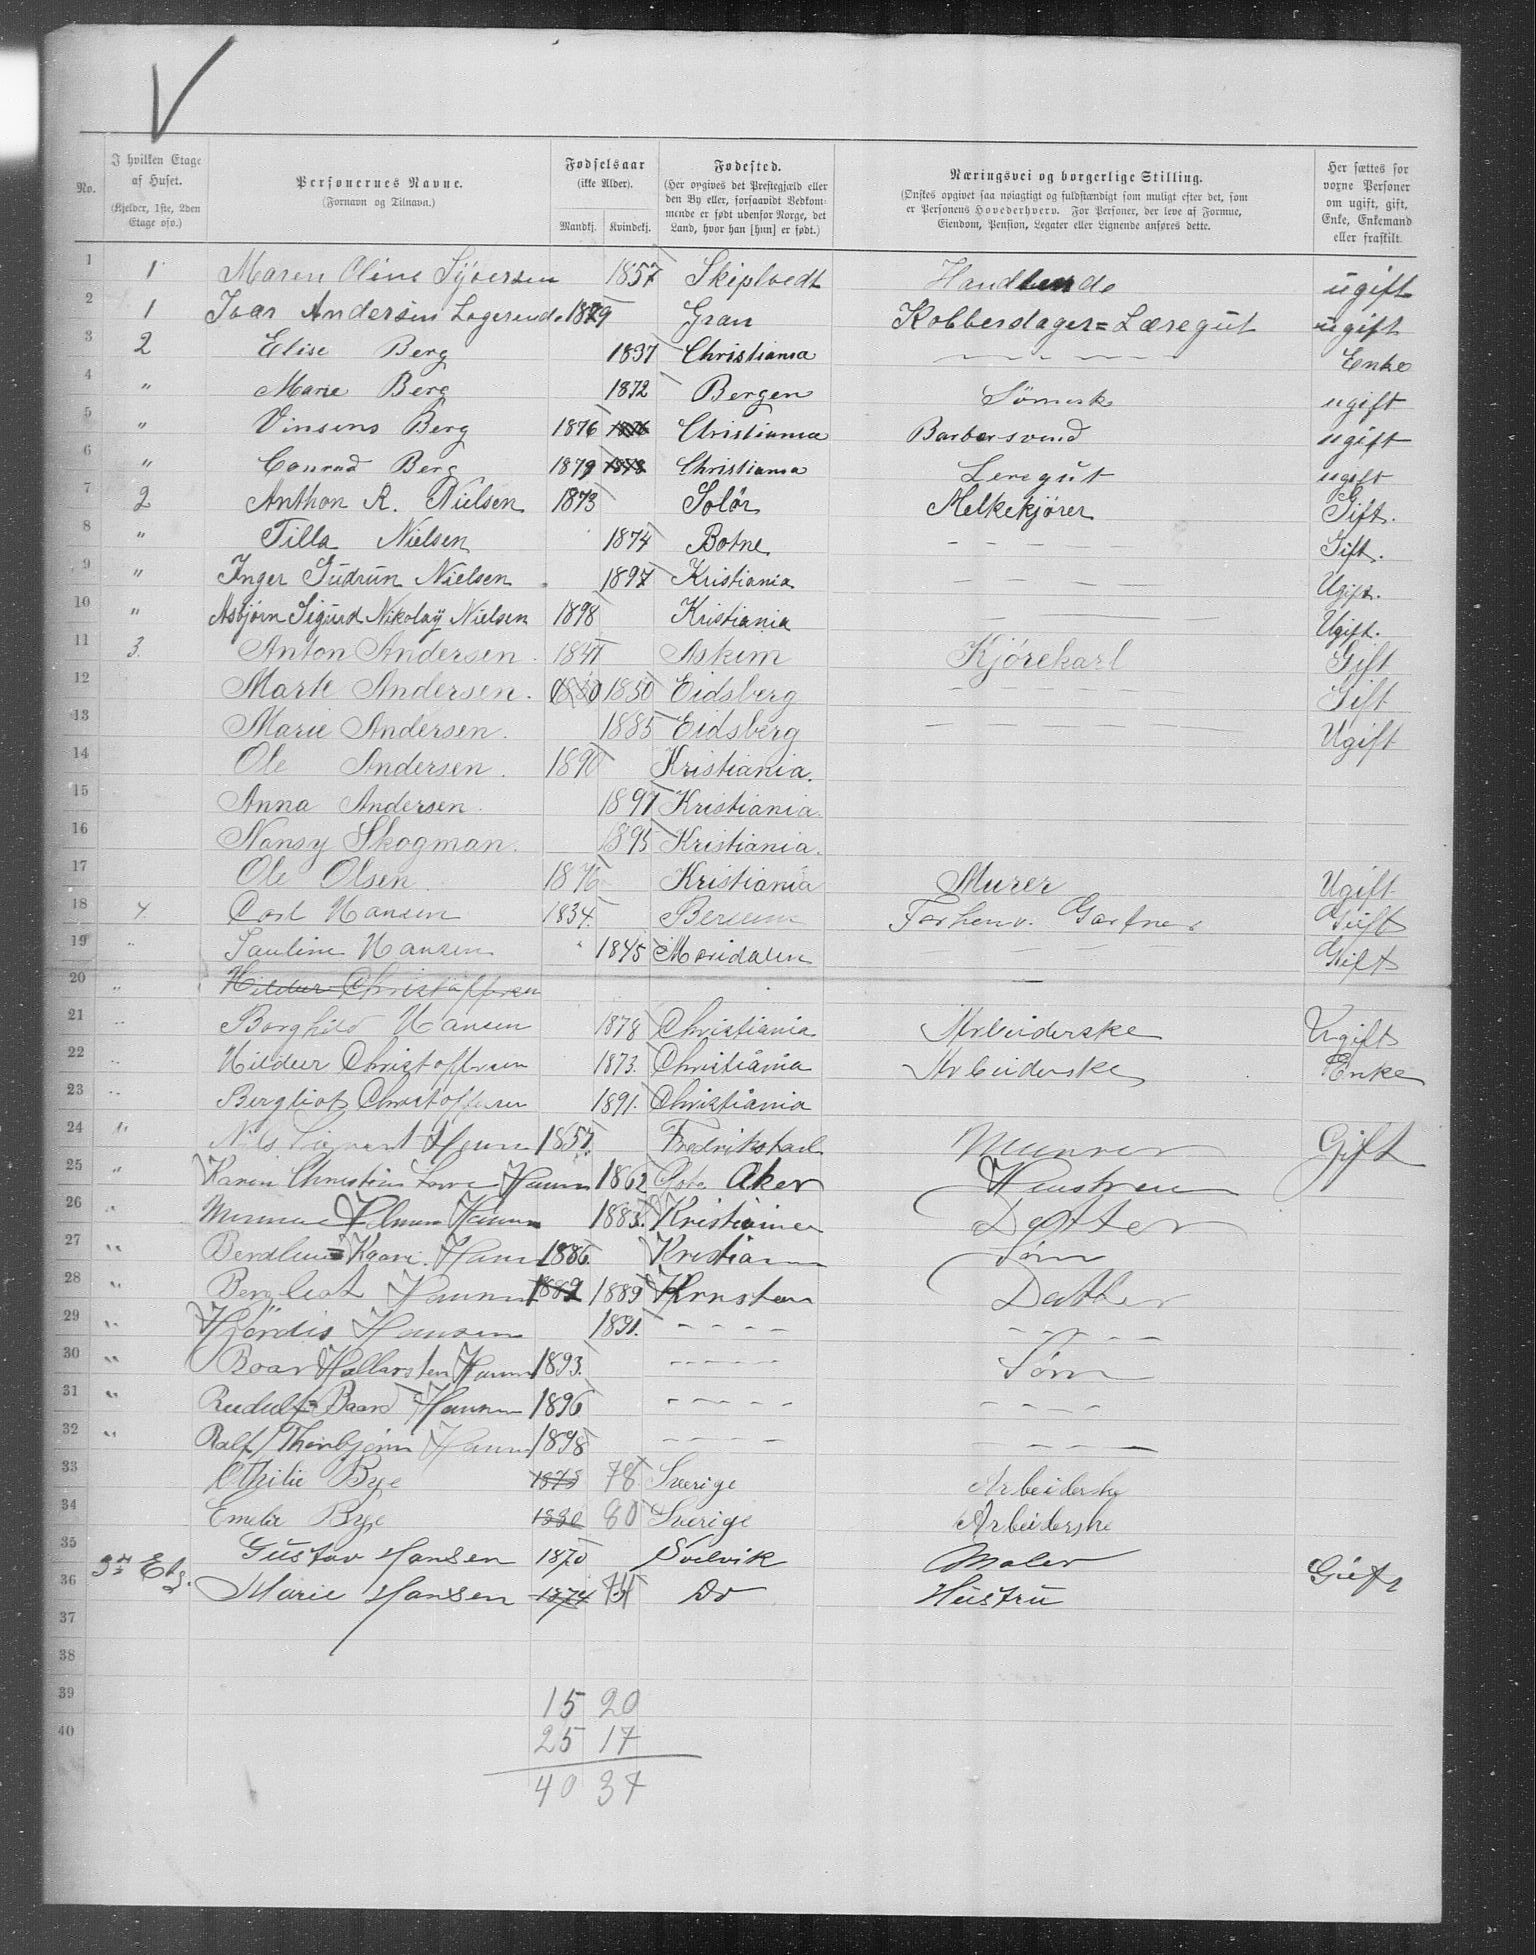 No.
I hvilken Etage af Huset. (Kjelder, 1ste, 2den Etage osv.)
Personernes Navne. (Fornavn og Tilnavn.)
Fødselsaar (ikke Alder). Mandkj. Kvindekj.
Fødested. (Her opgives det Prestegjæld eller den By eller, forsaavidt Vedkommende er født udenfor Norge, det Land, hvor han [hun] er født.)
Næringsvei og borgerlige Stilling. (Ønskes opgivet saa nøiagtigt og fuldstændigt som muligt efter det, som er Personens Hovederhverv. For Personer, der leve af Formue, Eiendom, Pension, Legater eller Lignende anføres dette.
Her sættes for voxne Personer om ugift, gift, Enke, Enkemand eller fraskilt.
1 1 Maren Oline Syversen 1857 Skiptvedt Handlende ugift
2 1 Ivar Andersen 1879 Gran Kobberslager= Læregut ugift
3 2 Elise Berg 1837 Christiania - - - - - Enke
4 " Marie Berg 1872 Bergen Sömesk ugift
5 " Vinsens Berg 1876 1876 Christiania Barbersvend ugift
6 " Conrad Berg 1879 Christiania Leregut ugift
7 2 Anthon R. Nielsen 1873 Solör Melkekjörer Gift.
8 " Tilla Nielsen 1874 Botne - - - - - Gift.
9 " Inger Gudrun Nielsen 1897 Kristiania - - - - Ugift.
10 " Asbjørn Sigurd Nikolay Nielsen 1898 Kristiania - - - Ugift.
11 3. Anton Andersen. 1847 Askim Kjørekarl Gift
12 Marte Andersen. 1850 Eidsberg - - - - - Gift
13 Marie Andersen. 1885 Eidsberg - - - - Ugift
14 Ole Andersen. 1890 Kristiania.
15 Anna Andersen. 1891 Kristiania.
16 Nansy Skogman. 1895 Kristiania.
17 Ole Olsen. 1876 Kristiania Murer Ugift
18 4. Carl Hansen 1834. Berum Forhenv. Gartner Gift
19 " Pauline Hansen 1845 Maridalen Gift
20 " Hildur Christoffersen
21 " Borghild Hansen 1878 Christiania Arbeiderske Ugift
22 " Hildur Christoffersen 1873. Christiania Arbeiderske Enke
23 " Bergliot Christoffersen 1891. Christiania
24 " Nils Hansen 1857. Fredrikstad Murer Gift
25 " Karen Christine Hansen 1862 Aker Hustru
26 " Hansen 1883. Kristiania Datter
27 " Kaare Hansen 1886. Kristiania Sön
28 " Bergliot Hansen 1889 1889 Kristania Datter
29 " Hjördis Hansen 1891. - - - - - - - - -
30 " Roar Hallarsten Hansen 1893. - - - - - Sön
31 " Rudulf Baard Hansen 1896 - - - - - - - - -
32 " Ralf Thorbjörn Hansen 1898 - - - - - - - - -
33 Othilie Bye 1878 78 Sverige Arbeiderske
34 Emelie Bye 1880 80 Sverige Arbeiderske
35 3die Etg. Gustav Hansen 1870 Svelvik Maler Gift
36 Marie Hansen 1874 74 Do Hustru
37
38
39 15 20
40 25 17
40 37